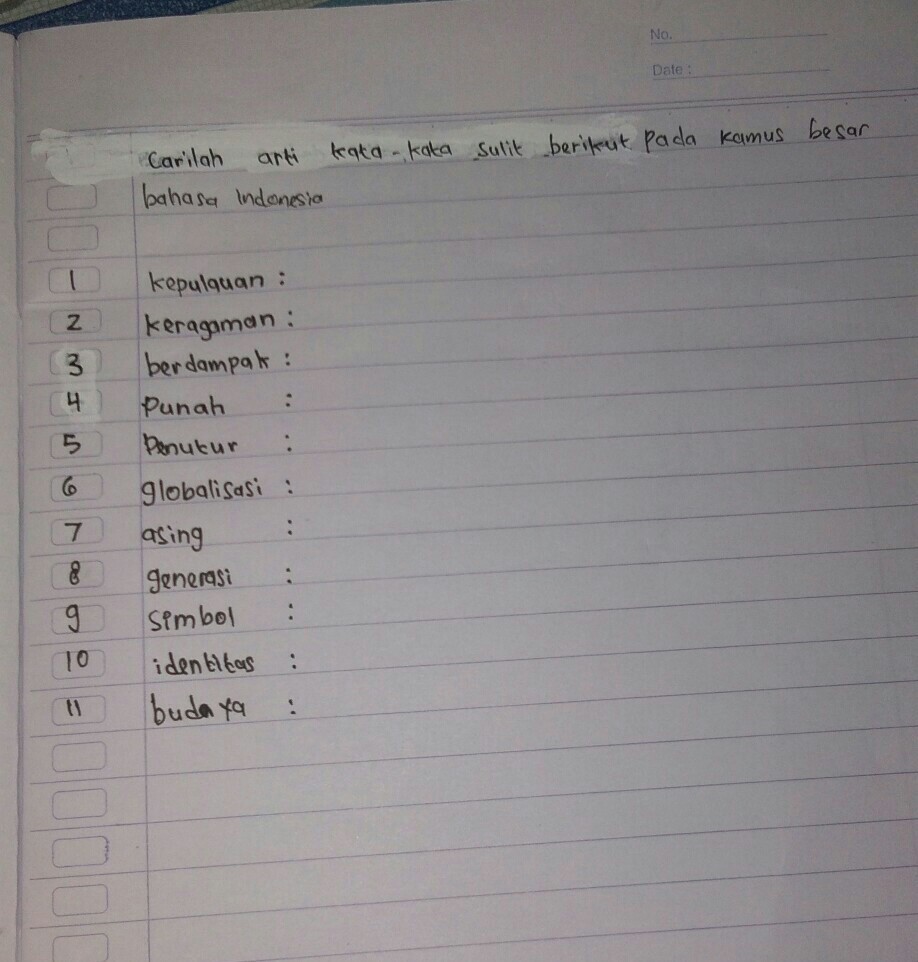 No.
Date :
Carilah arti kata-kata sulit berikut pada kamus besar
bahasa Indonesia
1 kepulauan :
2 keragaman :
3 berdampak :
4 Punah :
5 Penutur :
6 globalisasi :
7 asing :
8 generasi :
9 simbol :
10 identitas :
11 budaya :